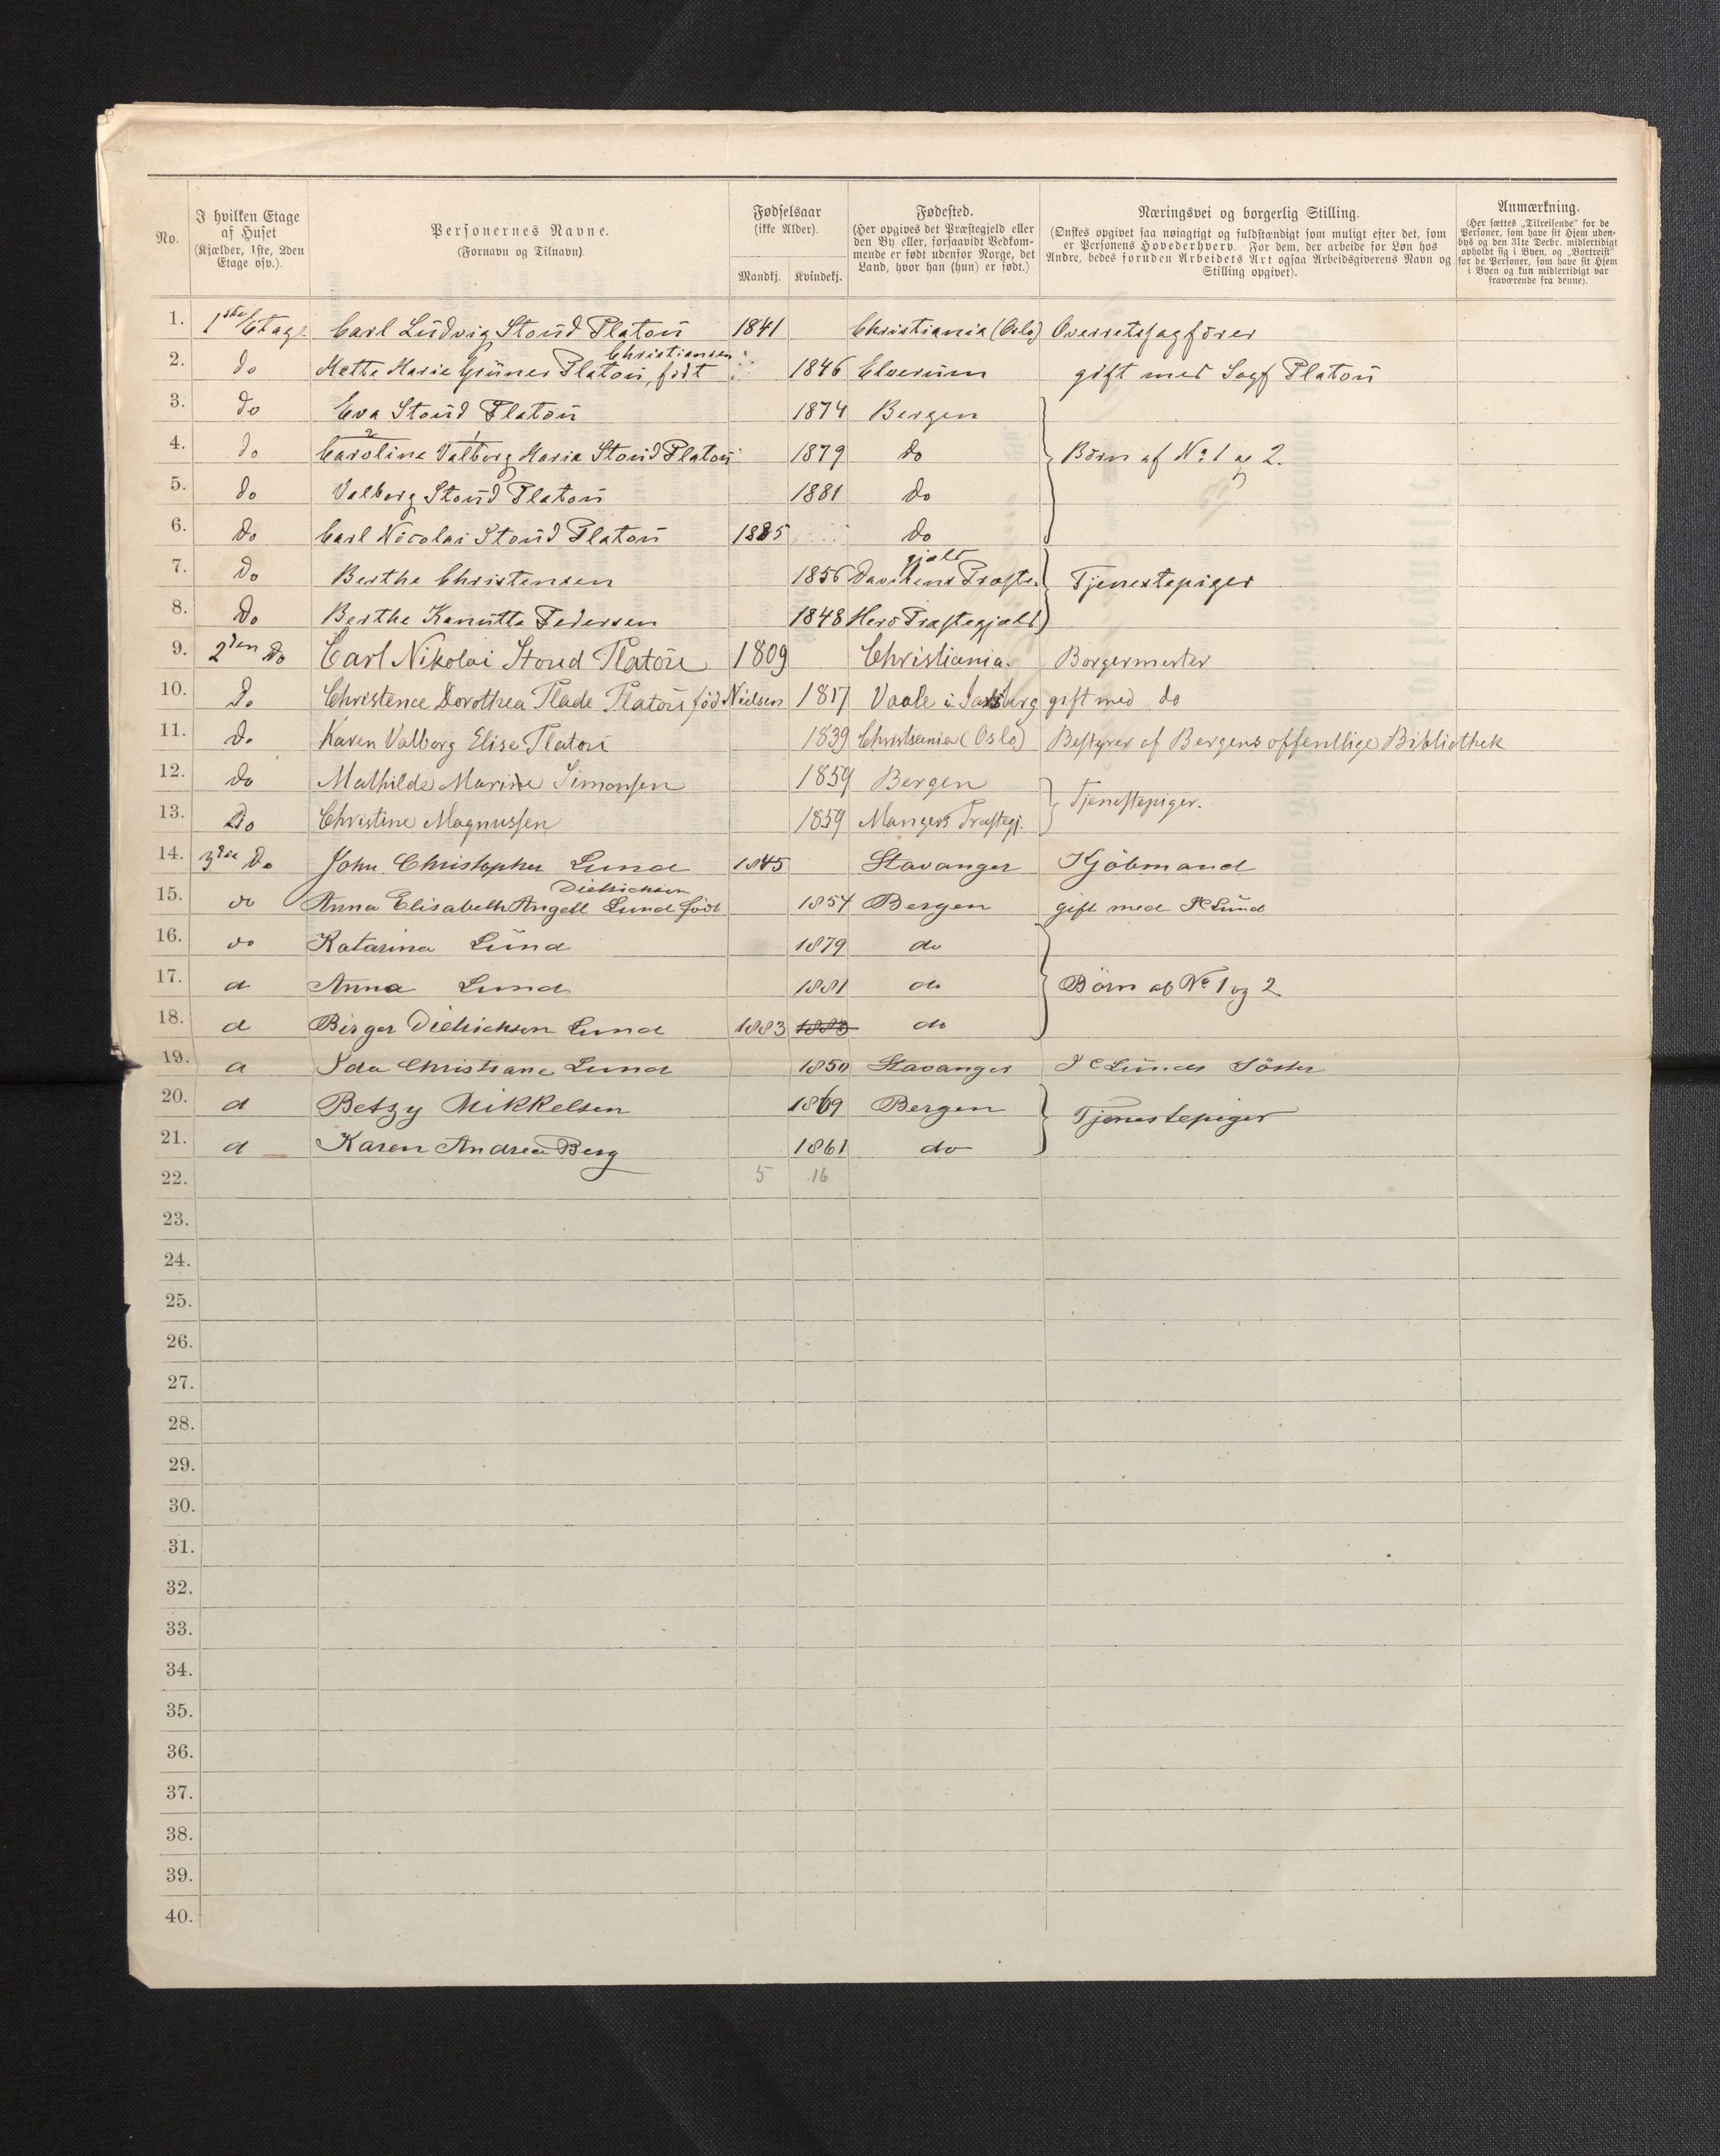 No.
I hvilken Etage
af Huset
(Kjælder, 1ste, 2den
Etage osv.).
Personernes Navne.
(Fornavn og Tilnavn).
Fødselsaar
(ikke Alder).
Mandkj. Kvindekj.
Fødested.
(Her opgives det Præstegjeld eller
den By eller, forsaavidt Vedkom-
mende er født udenfor Norge, det
Land, hvor han (hun) er født.)
Næringsvei og borgerlig Stilling.
(Ønskes opgivet saa nøiagtigt og fuldstændigt som muligt efter det, som
er Personens Hovederhverv. For dem, der arbeide for Løn hos
Andre, bedes foruden Arbeidets Art ogsaa Arbeidsgiverens Navn og
Stilling opgivet).
Anmærkning.
(Her sættes „Tilreisende“ for de
Personer, som have sit Hjem uden-
bys og den 31te Decbr. midlertidigt
opholdt sig i Byen, og „Bortreist“
for de Personer, som have sit Hjem
i Byen og kun midlertidigt var
fraværende fra denne).
1. 1ste Etage Carl Ludvig Stoud Platou 1841 Christiania (Oslo) Overretssagfører
Christiansen
2. do Mette Marie Grüner Platou, født 1846 Elverum gift med Sagf Platou
3. do Eva Stoud Platou 1874 Bergen
2 1
4. do Caroline Valborg Maria Stoud Platou 1879 do Börn af No 1 og 2.
5. do Valborg Stoud Platou 1881 do
6. do Carl Nicolai Stoud Platou 1885 do
gjæld
7. do Berthe Christensen 1856 Davikens Præste. Tjenestepiger
8. Do Berthe Kanutta Pedersen 1848 Herø Præstegjæld
9. 2den Do Carl Nikolai Stoud Platou 1809 Christiania. Borgermester
10. Do Christence Dorothea Plade Platou fød Nielsen 1817 Vaale i Jarlsberg gift med do
11. Do Karen Valborg Elise Platou 1839 Christiania (Oslo) Bestyrer af Bergens offentlige Bibliothek
12. Do Mathilde Marine Simonsen 1859 Bergen Tjenestepiger.
13. Do Christine Magnussen 1859 Mangers Præstegj.
14. 3die Do John Christopher Lund 1845 Stavanger Kjöbmand
Dietrichson
15. do Anna Elisabeth Angell Lund född 1854 Bergen gift med JC Lund
16. do Katarina Lund 1879 do
17. d Anna Lund 1881 do Börn af No 1 og 2
18. d Birger Dietrichson Lund 1883 1883 do
19. d Ida Christiane Lund 1850 Stavanger J C Lunds Söster
20. d Betzy Mikkelsen 1869 Bergen Tjenestepiger
21. d Karen Andrea Berg 1861 do
22. 5 16
23.
24.
25.
26.
27.
28.
29.
30.
31.
32.
33.
34.
35.
36.
37.
38.
39.
40.